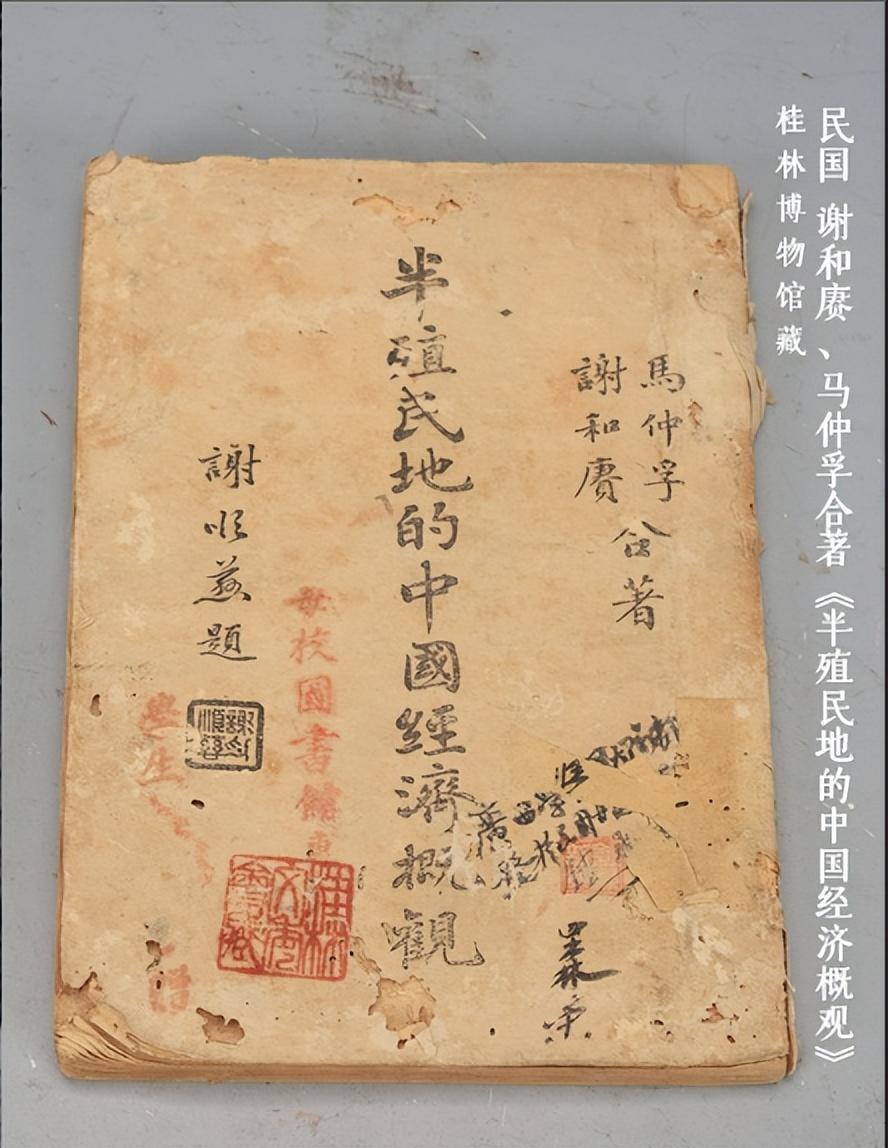 民国 谢和赓、马仲孚合著《半殖民地的中国经济概观》
桂林博物馆藏
馬仲孚
謝和賡
合著
半殖民地的中國經濟概觀
謝順慈題
母校圖書館
學生